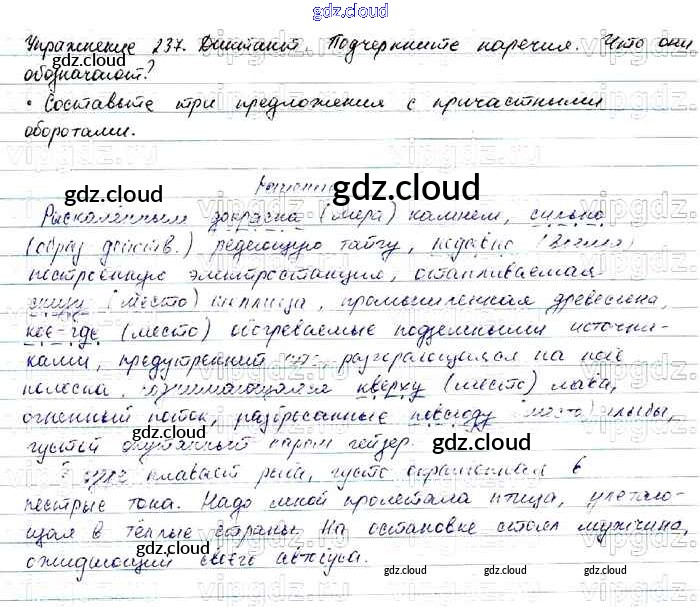 gdz.cloud
Упражнение 237. Диктант. Подчеркните наречия. Что они
обозначают?
• Составьте три предложения с причастными
оборотами.
gdz.cloud gdz.cloud
Раскалённым докрасна (мера) камнем, сильно
(образ действ.) редеющую тайгу, недавно (время)
построенную электростанцию, отапливаемая
(место) теплица, промышленная древесина,
кое-где (место) обогреваемые подземными источни-
ками, предутренний разгорающаяся на небе
полоска, поднимающаяся кверху (место) лава,
огненный поток, разбросанные повсюду (место) глыбы,
густой окутанный паром гейзер.
плавает рыба, густо окрашенная в
пестрые тона. Надо мной пролетала птица, улетаю-
щая в тёплые страны. На остановке стоял мужчина,
ожидающий своего автобуса.
gdz.cloud gdz.cloud gdz.cloud